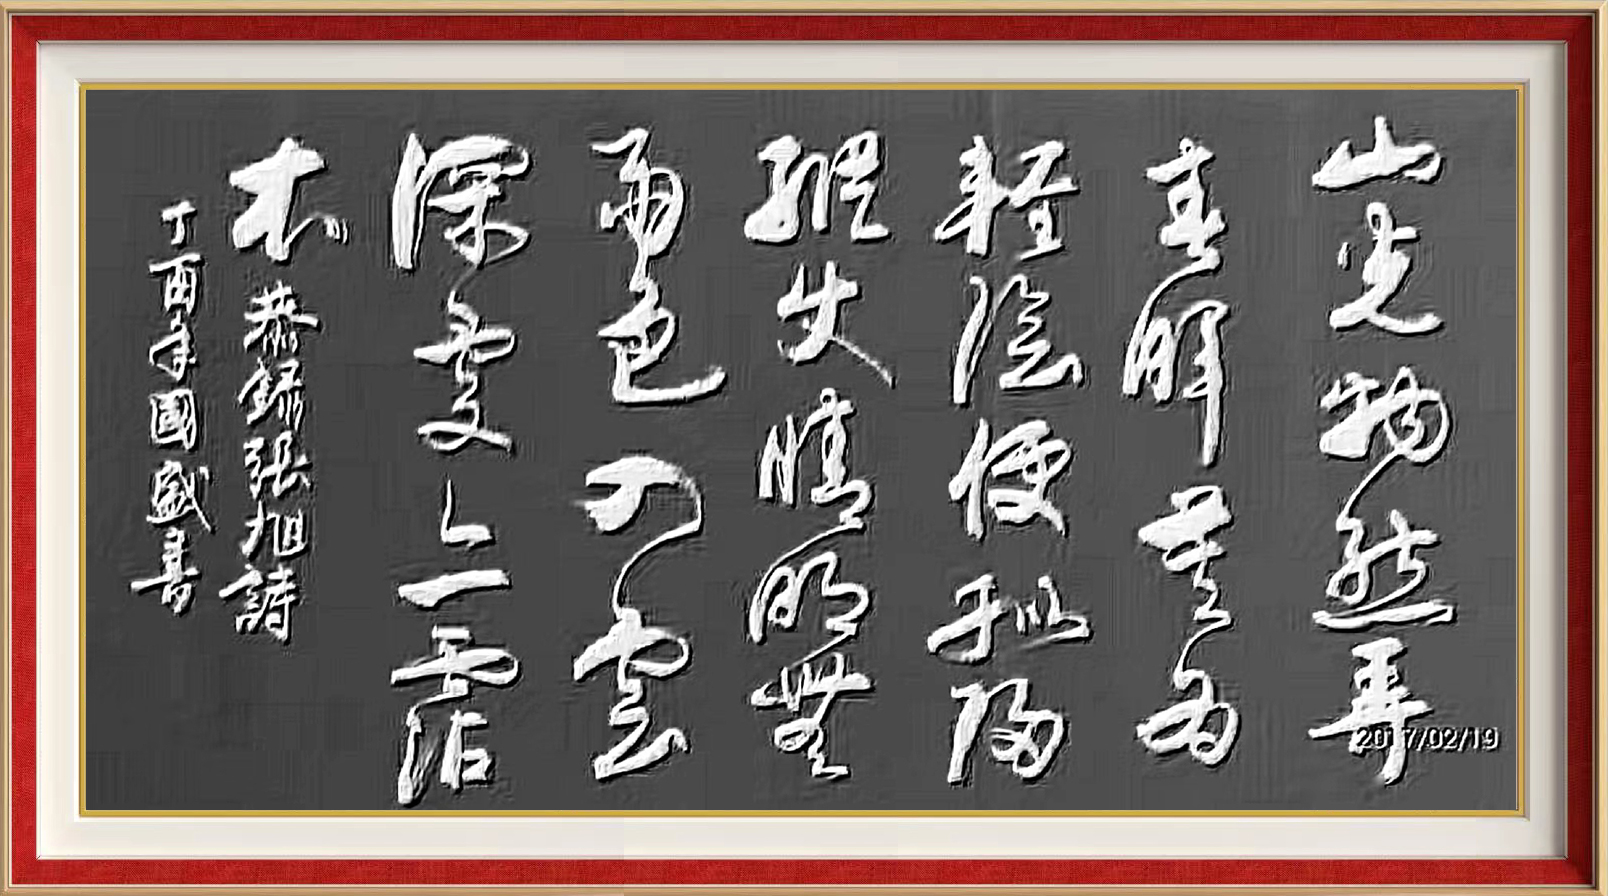 山光物態弄
春暉莫為
輕陰便擬歸
縱使晴明無
雨色入雲
深處亦霑
衣 恭錄張旭詩
丁酉年國盛書
2017/02/19